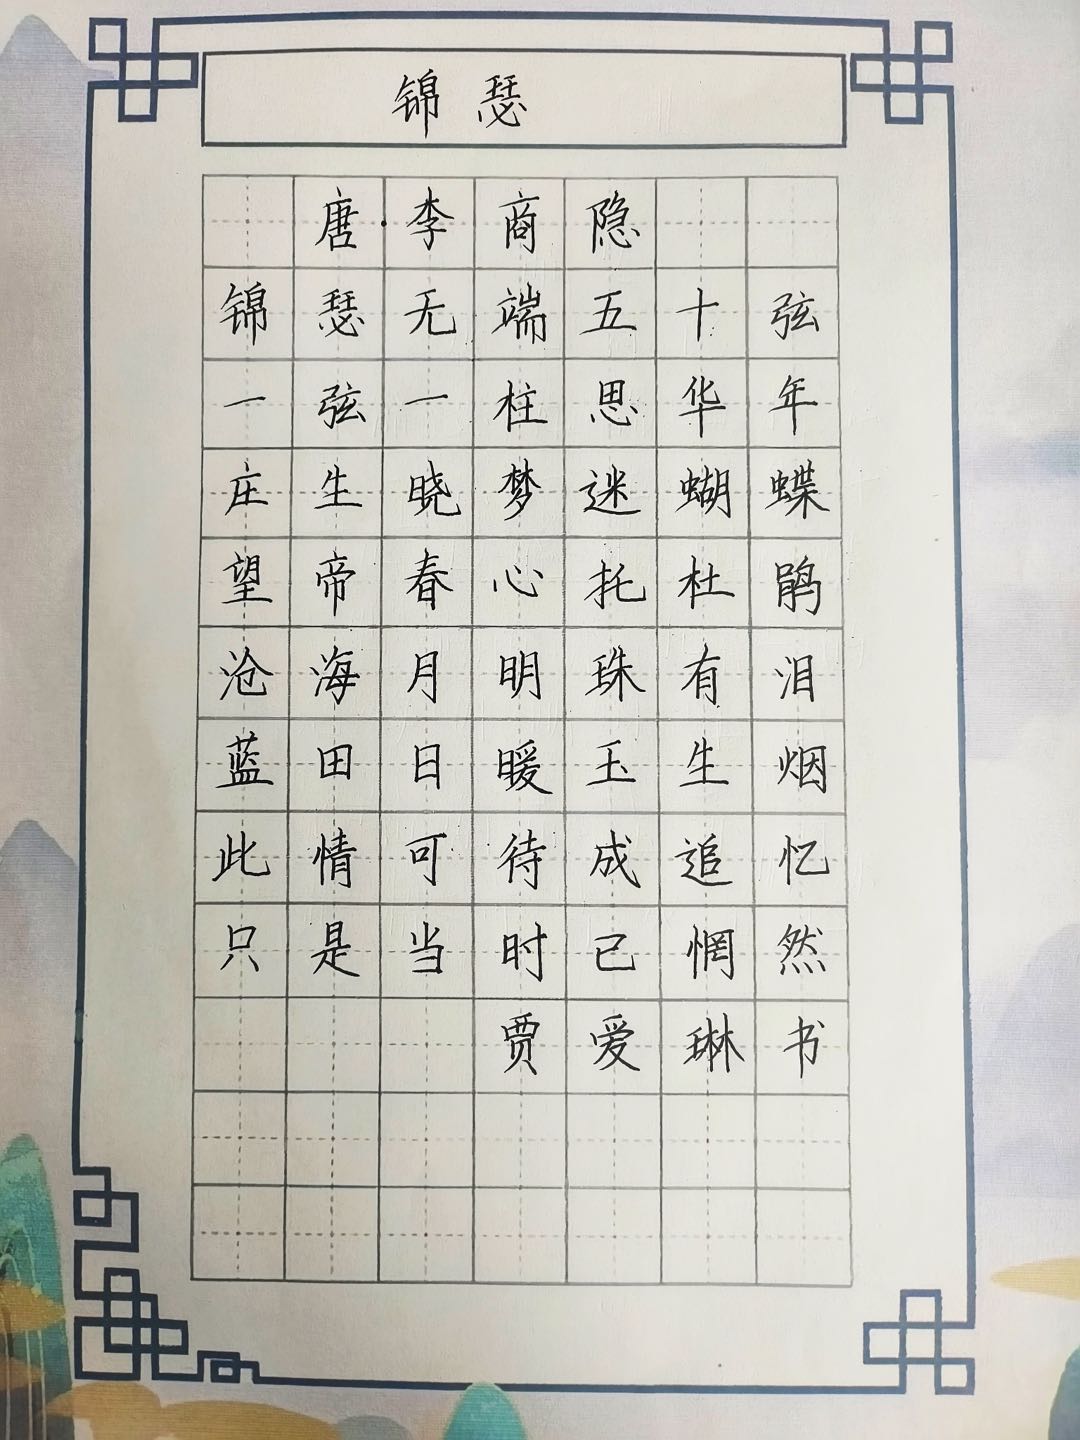 锦瑟
唐·李商隐
锦瑟无端五十弦
一弦一柱思华年
庄生晓梦迷蝴蝶
望帝春心托杜鹃
沧海月明珠有泪
蓝田日暖玉生烟
此情可待成追忆
只是当时已惘然
贾爱琳书